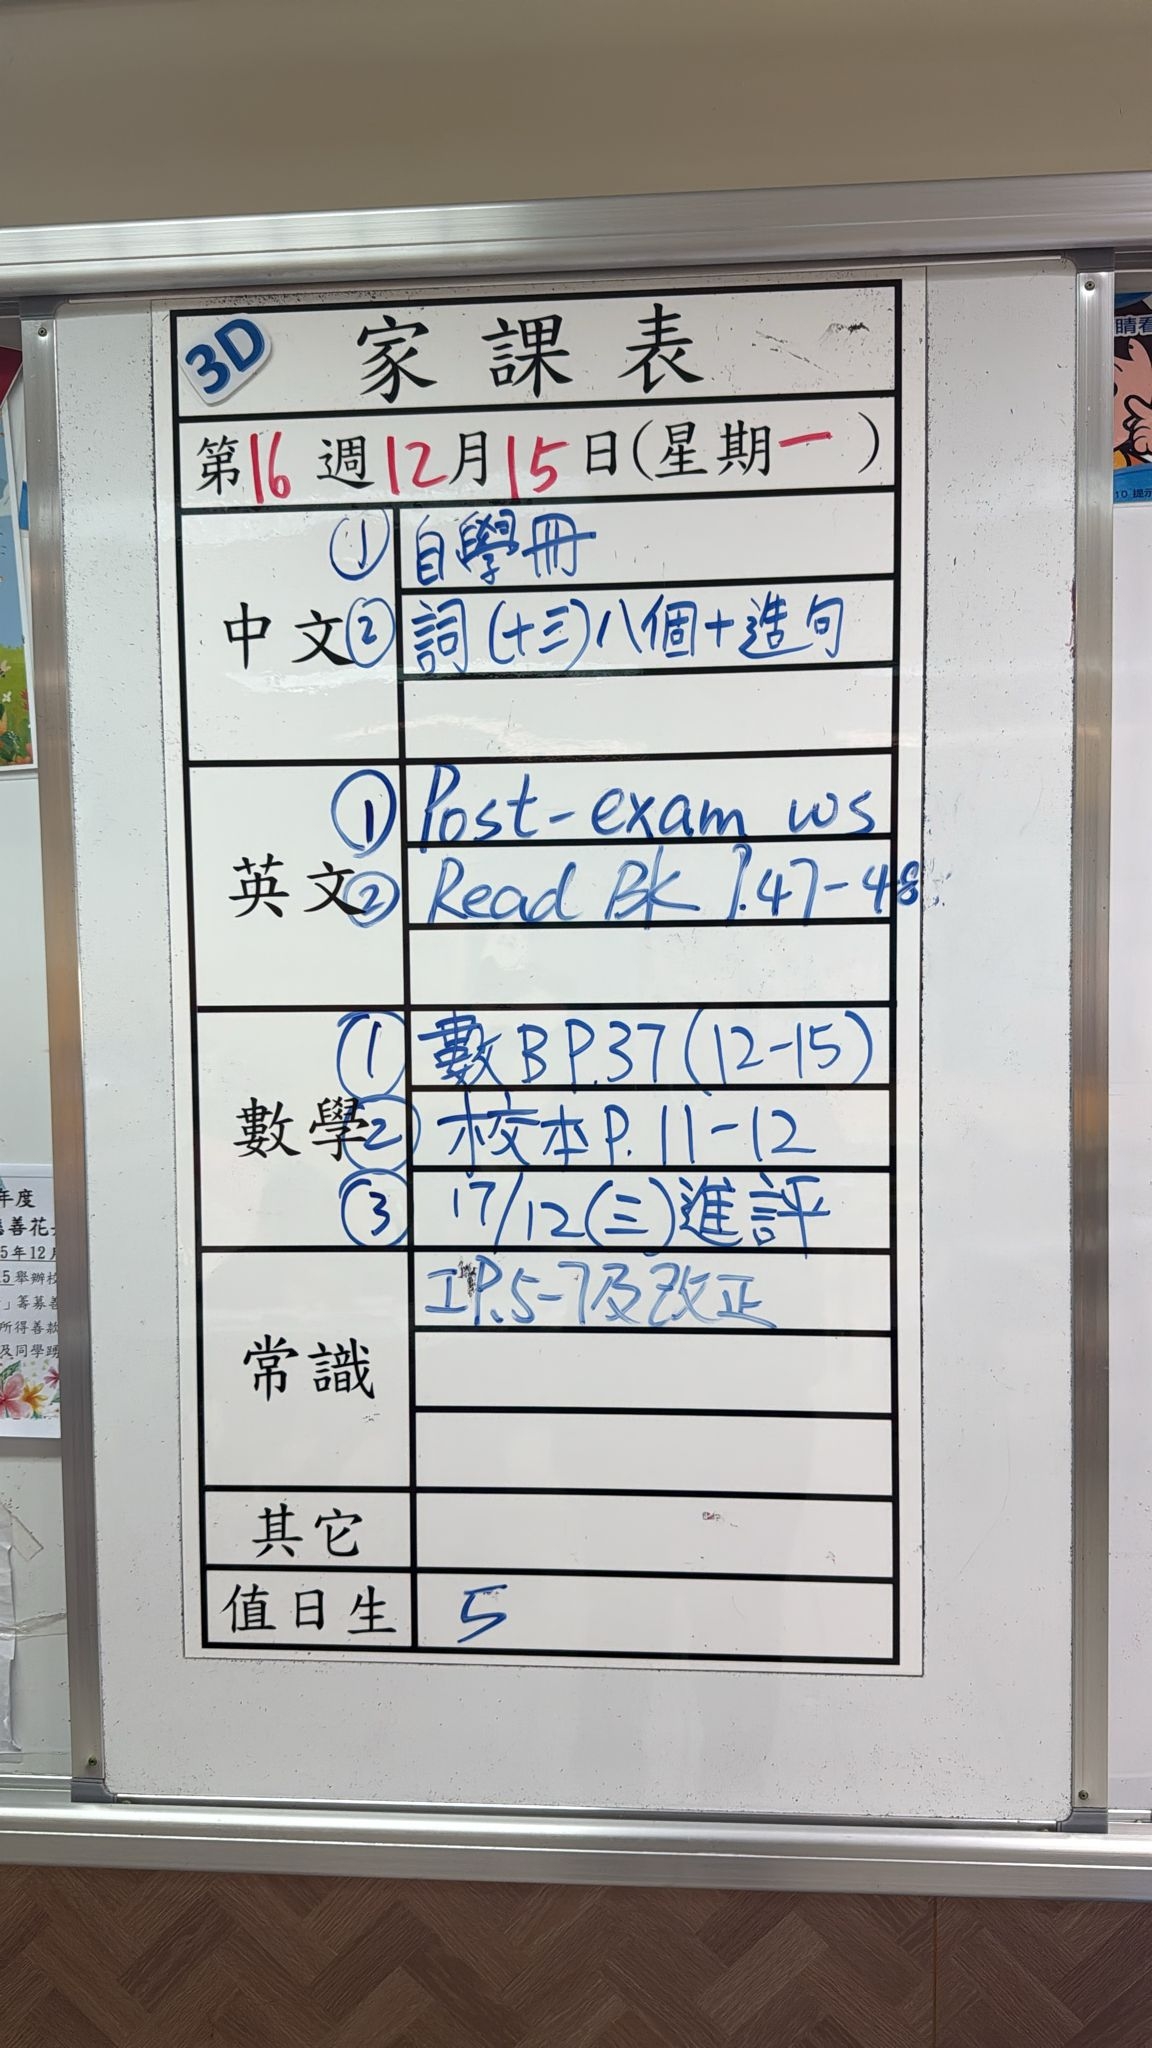 3D 家課表
第16週12月15日(星期一)
中文
① 自學冊
② 詞(十三)八個+造句
英文
① Post-exam ws
② Read BK P.47-48
數學
① 數B P.37(12-15)
② 校本P.11-12
③ 17/12(三)進評
常識
工P.5-7及改正
其它
值日生 5
年度
善花
5年12月
5舉辦校
」籌募善
所得善款
及同學踴
睛看
10 提示